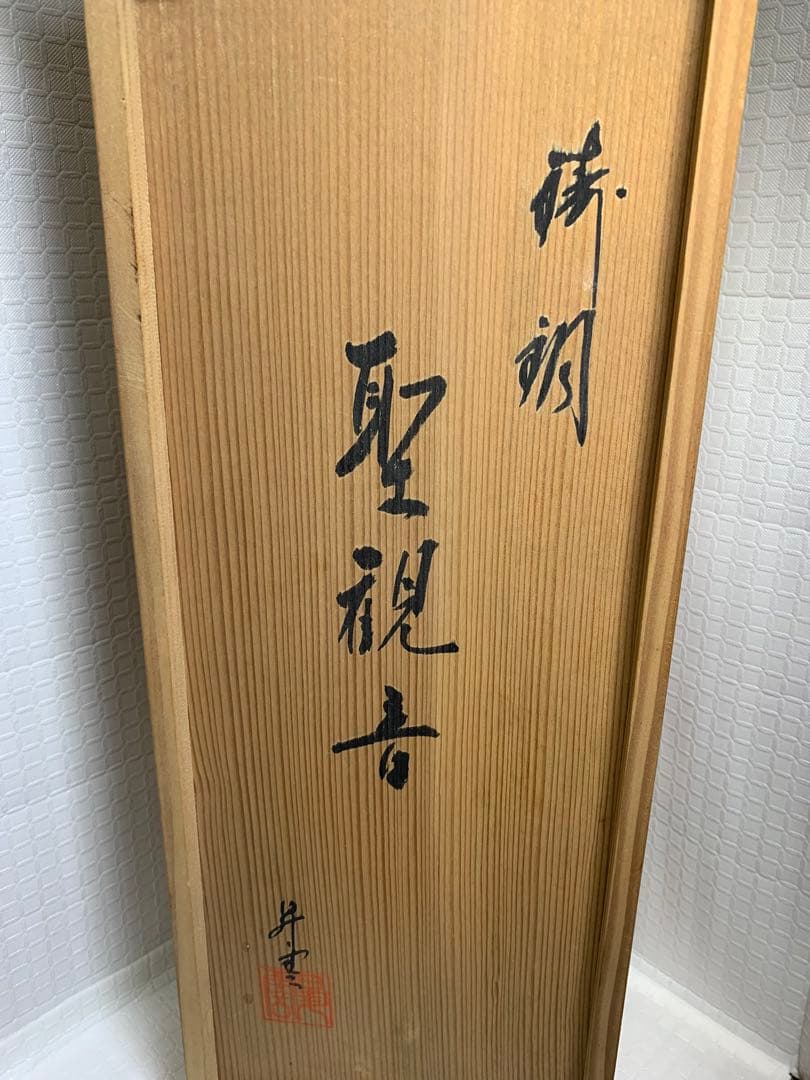 鋳銅
聖観音
昇雲